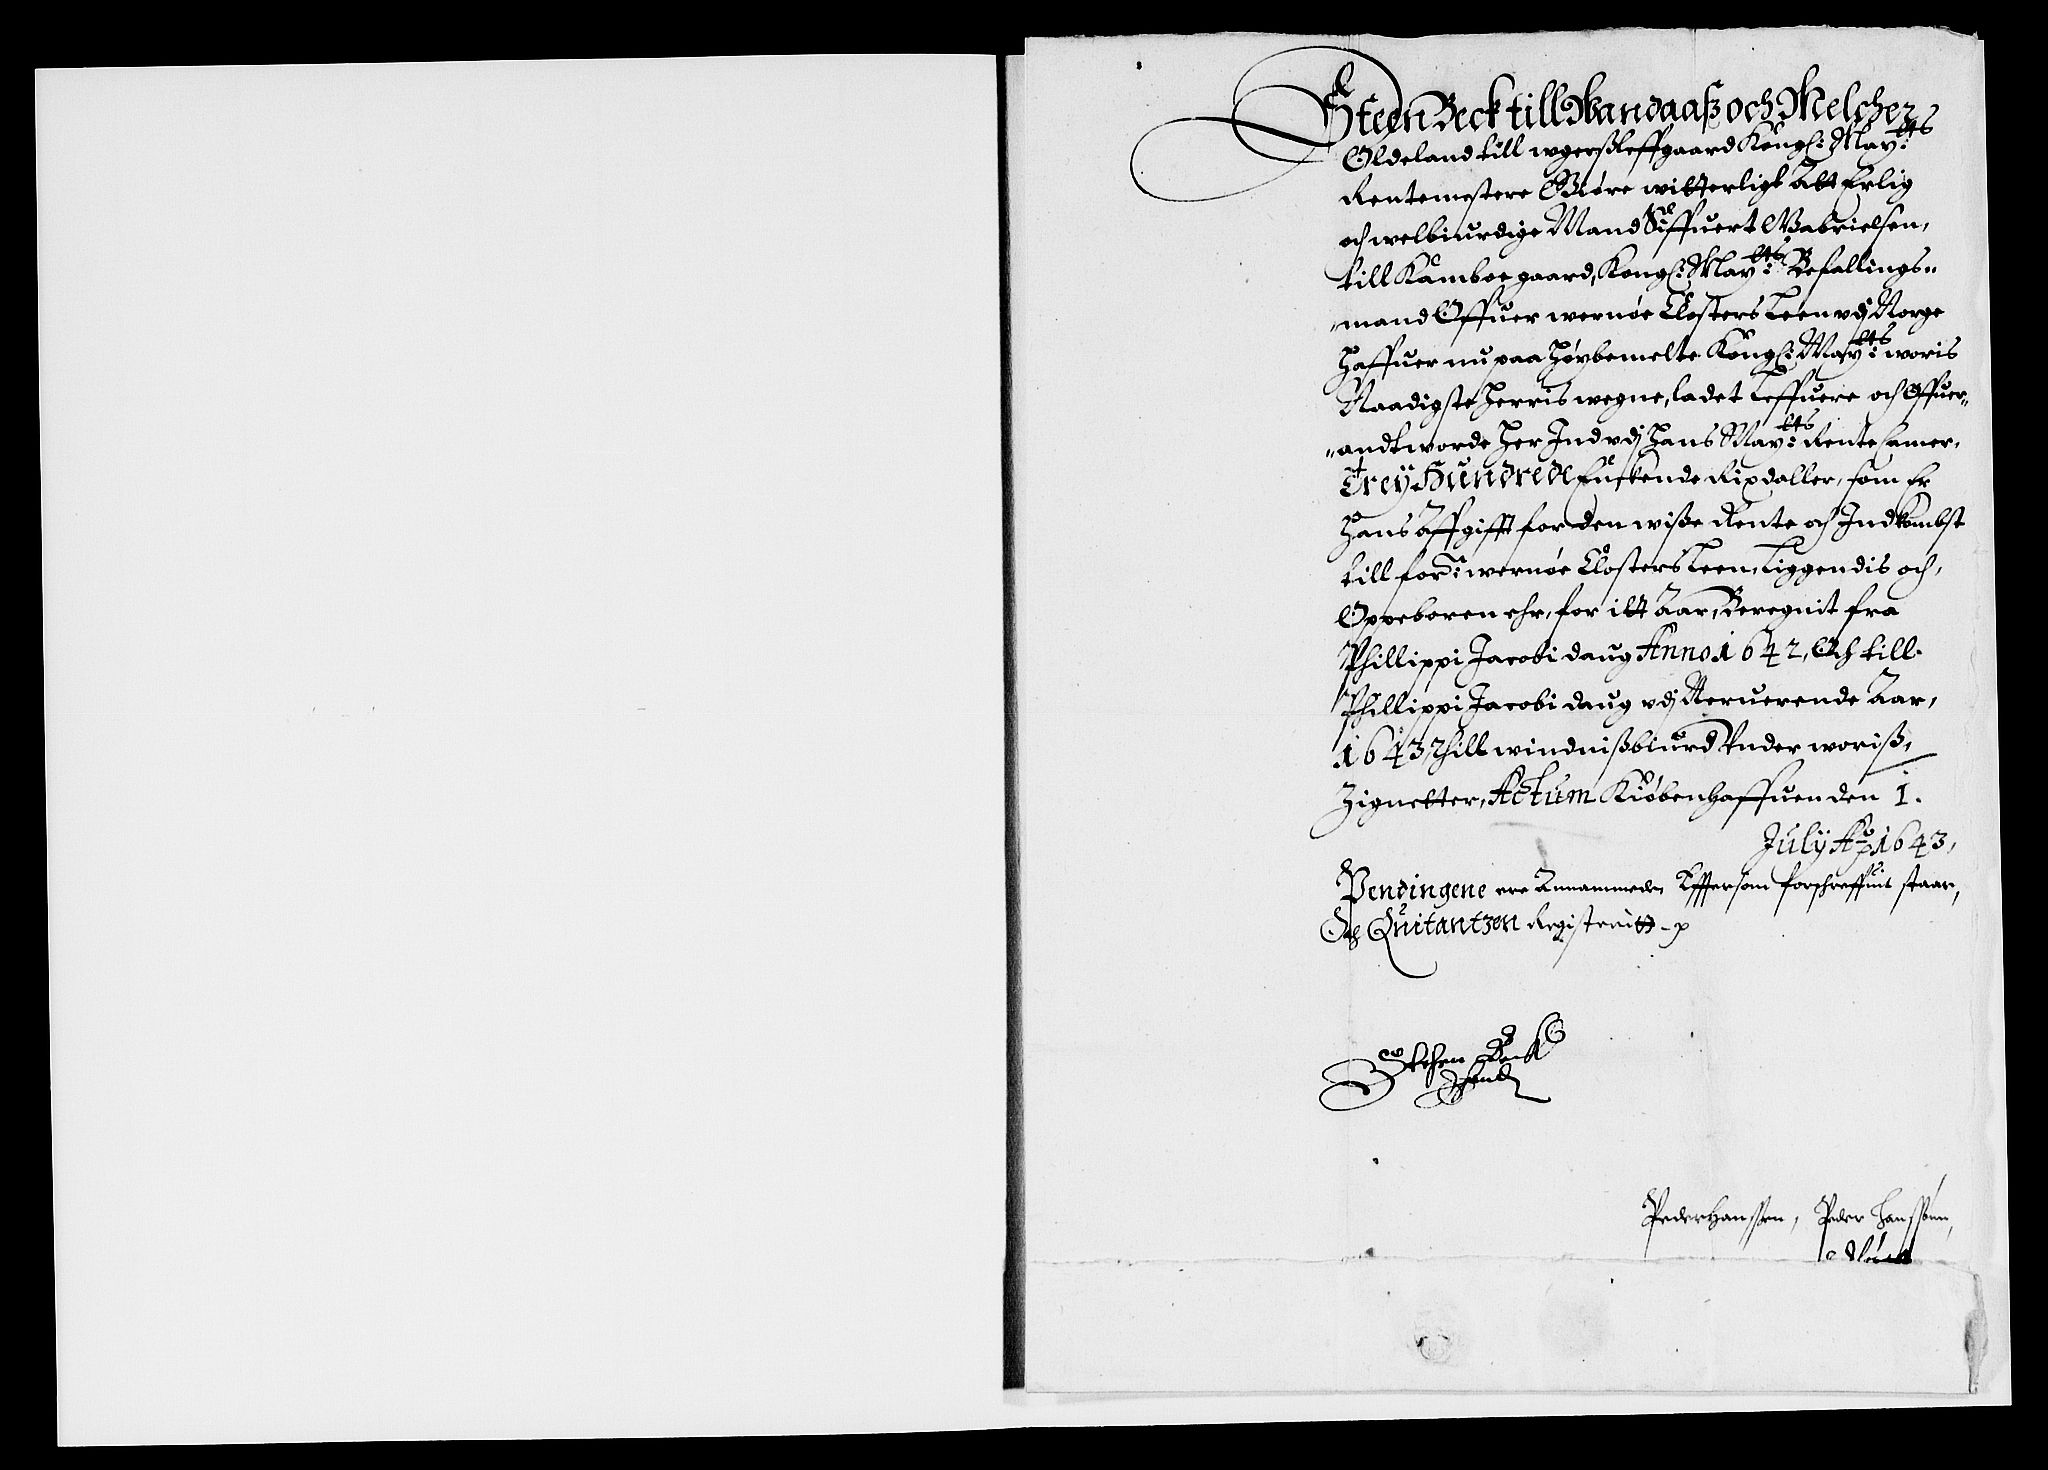 Steen Beck till Wandaaß och Melcher
Oldeland till wgersleffgaard Kongl: May:tts
Rentemestere Giøre witterligt Att Erlig
och welbiurdige Mand Siffuert Gabrielsen,
till Kamboe gaard, Kongl: May:tts Befallings-
mand Offuer wernøe Closters Leen vdj Norge
Haffuer nu paa Høybemelte Kongl: May:tts woris
Naadigste Herris wegne, ladet Leffuere och Offuer-
andtworde Her Ind vdj Hans May:tts Rente Camer,
Trey Hundrede Curtende Rixdaller, som Er
Hans Affgifft for den wiße Rente och Indkombst
till for:ne wernøe Closters Leen, Liggendis och,
Oppeboren ehr, for itt Aar, Beregnit fra
Phillippi Jacobi daug Anno 1642, Och till
Phillippi Jacobi daug vdj Neruerende Aar,
1643, Thill windnißbiurd Vnder woriß,
Zignetter, Actum Kiøbenhaffuen den 1.
July A:o 1643,
Pendingene ere Annammede, Effter som forschreffuit staar,
Och Quitantzen Registeritt
Stehen Beck
Hand
Peder Hanssen, Peder Hanssenn,